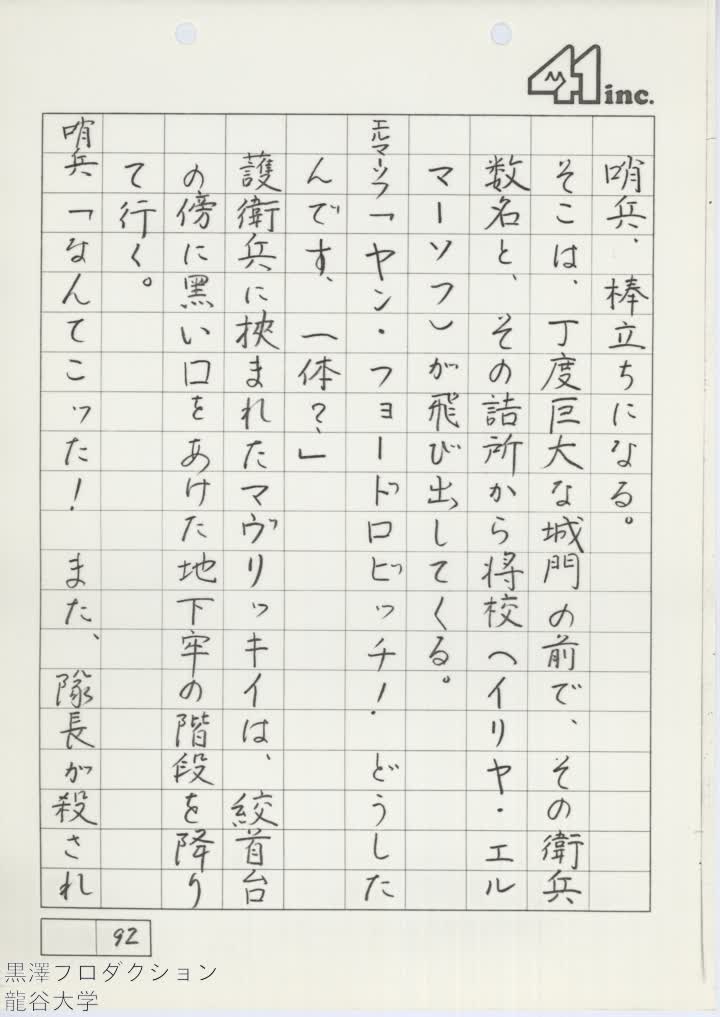 41 inc.
哨兵、棒立ちになる。
そこは、丁度巨大な城門の前で、その衛兵
数名と、その詰所から将校(イリヤ・エル
マーソフ)が飛び出してくる。
エルマーソフ「ヤン・フョードロビッチ! どうした
んです、一体?」
護衛兵に挾まれたマヴリッキイは、絞首台
の傍に黒い口をあけた地下牢の階段を降り
て行く。
哨兵「なんてこッた! また、隊長が殺され
92
黒澤プロダクション
龍谷大学